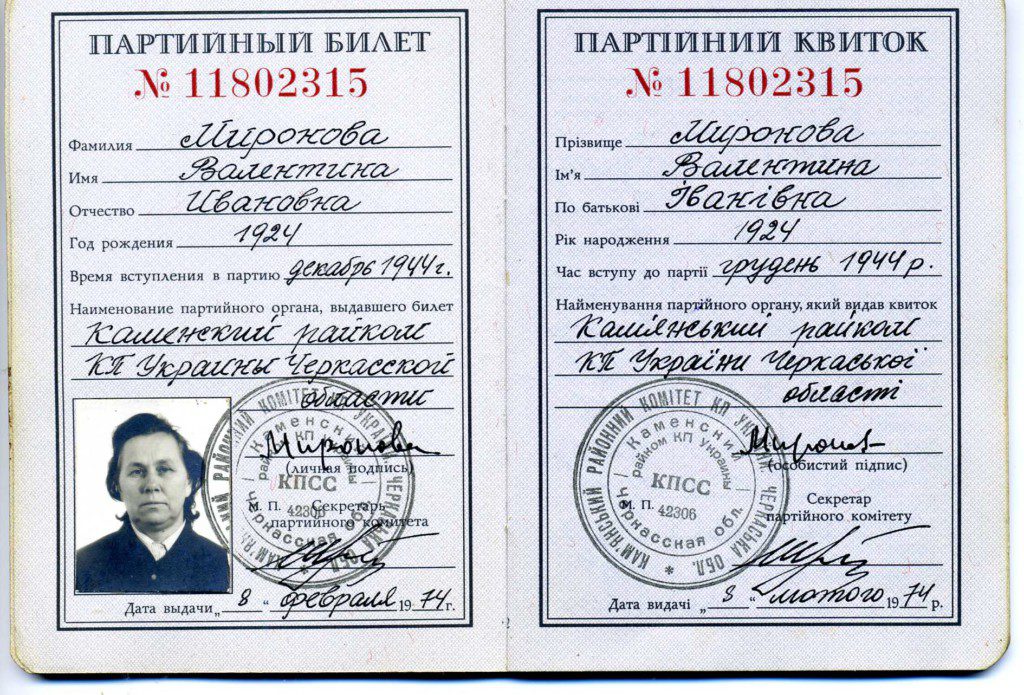 ПАРТИЙНЫЙ БИЛЕТ
№ 11802315
Фамилия Миронова
Имя Валентина
Отчество Ивановна
Год рождения 1924
Время вступления в партию декабрь 1944 г.
Наименование партийного органа, выдавшего билет
Каменский райком
КП Украины Черкасской
области
Миронова
(личная подпись)
М. П. Секретарь
партийного комитета
Дата выдачи „ 8 “ февраля 1974 г.
КАМ'ЯНСЬКИЙ РАЙОННИЙ КОМІТЕТ КП УКРАЇНИ ЧЕРКАСЬКА ОБЛ.
Каменский
райком КП Украины
КПСС
42306
Черкасская обл.
ПАРТІЙНИЙ КВИТОК
№ 11802315
Прізвище Миронова
Ім'я Валентина
По батькові Іванівна
Рік народження 1924
Час вступу до партії грудень 1944 р.
Найменування партійного органу, який видав квиток
Кам'янський райком
КП України Черкаської
області
(особистий підпис)
М. П. Секретар
партійного комітету
Дата видачі „ 8 “ лютого 1974 р.
КАМ'ЯНСЬКИЙ РАЙОННИЙ КОМІТЕТ КП УКРАЇНИ ЧЕРКАСЬКА ОБЛ.
Каменский
райком КП Украины
КПСС
42306
Черкасская обл.